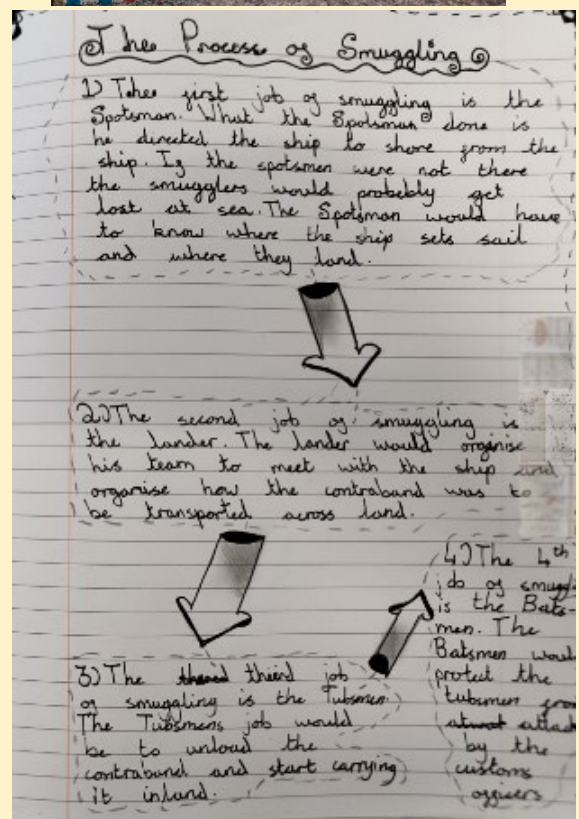 The Process of Smuggling
1) Thee first job of smuggling is the
Spotsman. What the Spotsman done is
he directed the ship to shore from the
ship. If the spotsmen were not there
the smugglers would probably get
lost at sea. The Spotsman would have
to know where the ship sets sail
and where they land.
2.) The second job of smuggling is
the lander. The lander would organise
his team to meet with the ship and
organise how the contraband was to
be transported across land.
3) The theird job
of smuggling is the Tubsmen
The Tubsmens job would
be to unload the
contraband and start carrying
it inland.
4.) The 4th
job of smuggl
is the Bats-
men. The
Batsmen woul
protect the
tubsmen from
attack
by the
customs
officers